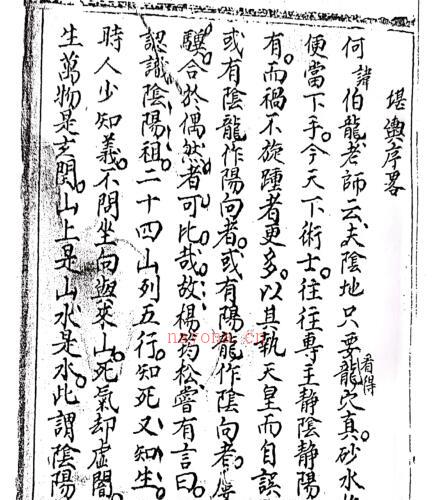 堪輿序畧
何諱伯龍老師云夫陰地只要看得龍穴真。砂水
便當下手。今天下術士。往往專主靜陰靜陽
有。而禍不旋踵者更多。以其執天皇而自誤
或有陰龍作陽向者。或有陽龍作陰向者。
驥合於偶然者可比哉。故楊筠松嘗有言曰。
認識陰陽祖。二十四山列五行。知死又知生。
時人少知義。不問坐向與來山。死氣却虛閒。
生萬物是玄関。山上是山水是水。此謂陰陽